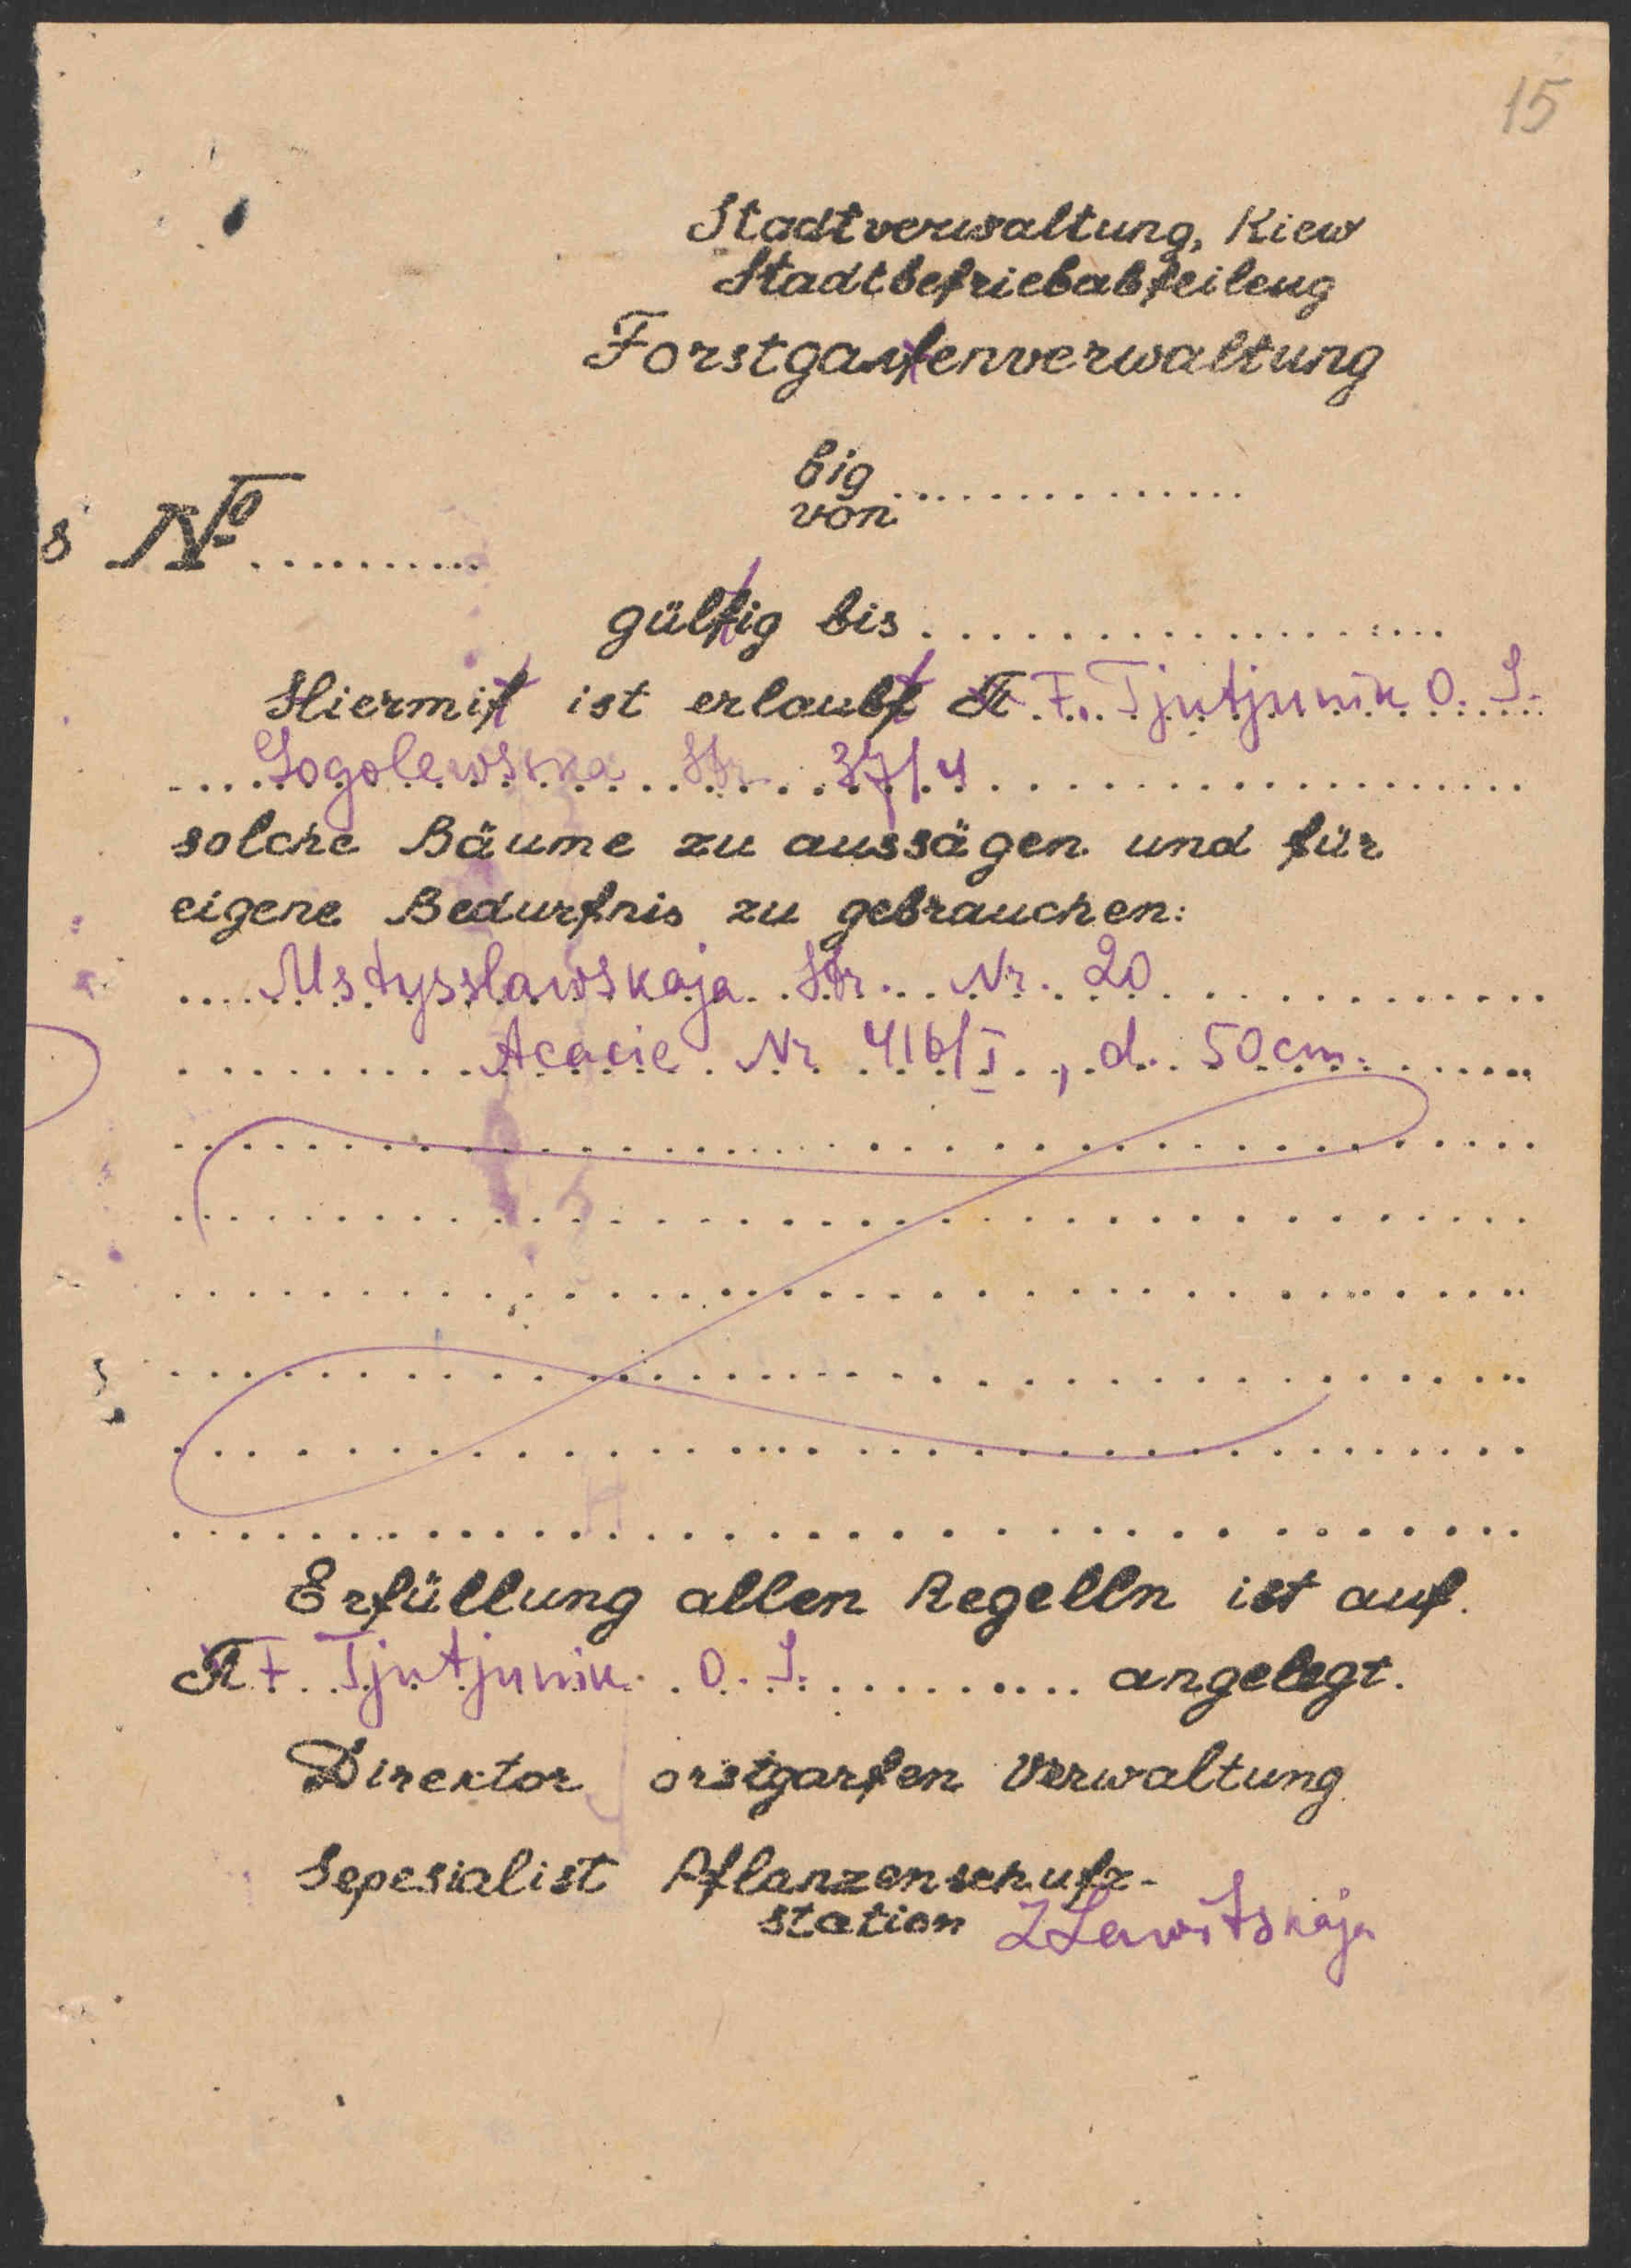 15
Stadtverwaltung, Kiew
Stadtbefriebabfeileng
Forstgartenverwaltung
big
von ...............
№ ..........
gültig bis ...................
Hiermit ist erlaubt F. Tjutjunik O. J.
Gogolewska Str. 37/4
solche Bäume zu aussägen und für
eigene Bedurfnis zu gebrauchen:
Mstysslawskaja Str. Nr. 20
Acacie Nr 416/I, d. 50 cm.
Erfüllung allen Regelln ist auf
F. Tjutjunik O. J. ............ angelegt.
Direktor orstgarfen Verwaltung
Sepesialist Pflanzenschufz-
station ZLewitskaja